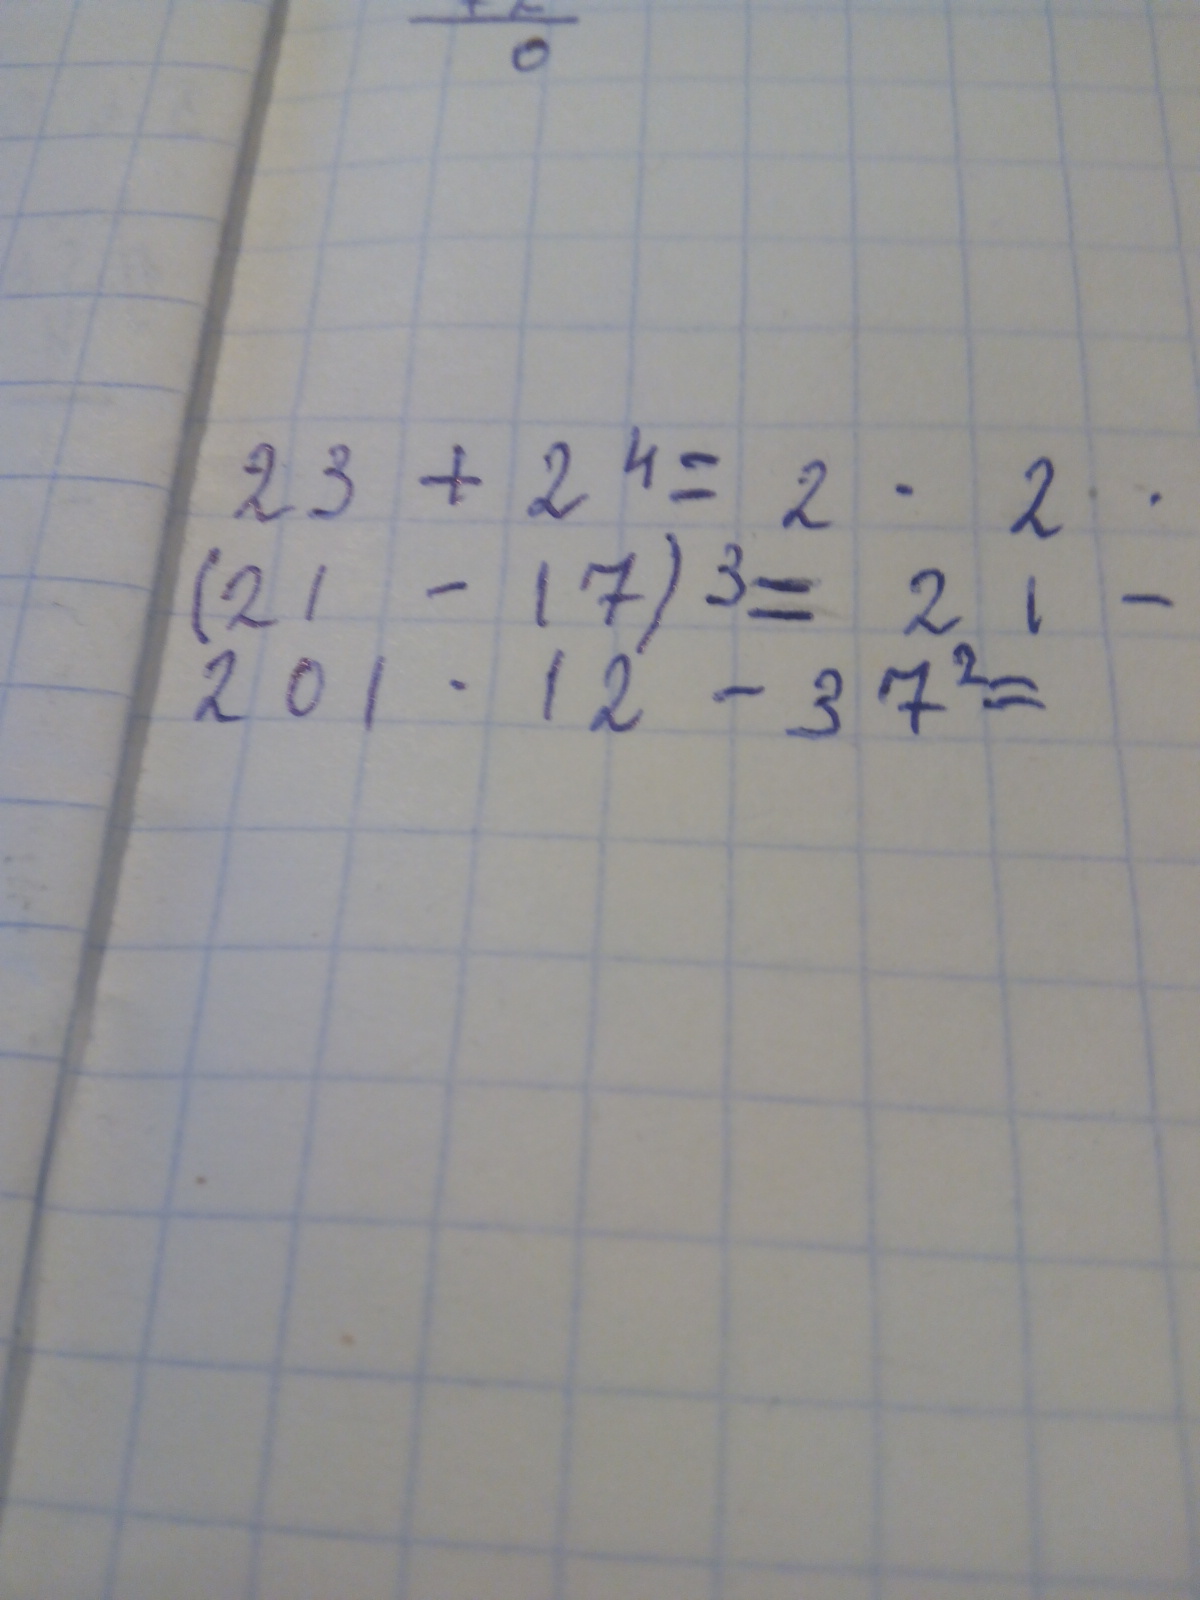 0
23 + 2⁴ = 2 · 2 ·
(21 - 17)³ = 21 -
201 · 12 - 37² =